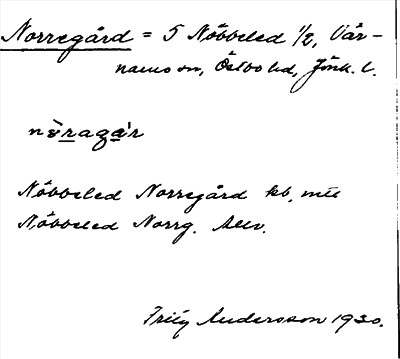 Norregård = 5 Nöbbeled 1/2, Vär-
namo sn, Östbo hd, Jönk. l.
nòragàr
Nöbbeled Norregård kb,
Nöbbeled Norrg.
Andersson 1930.